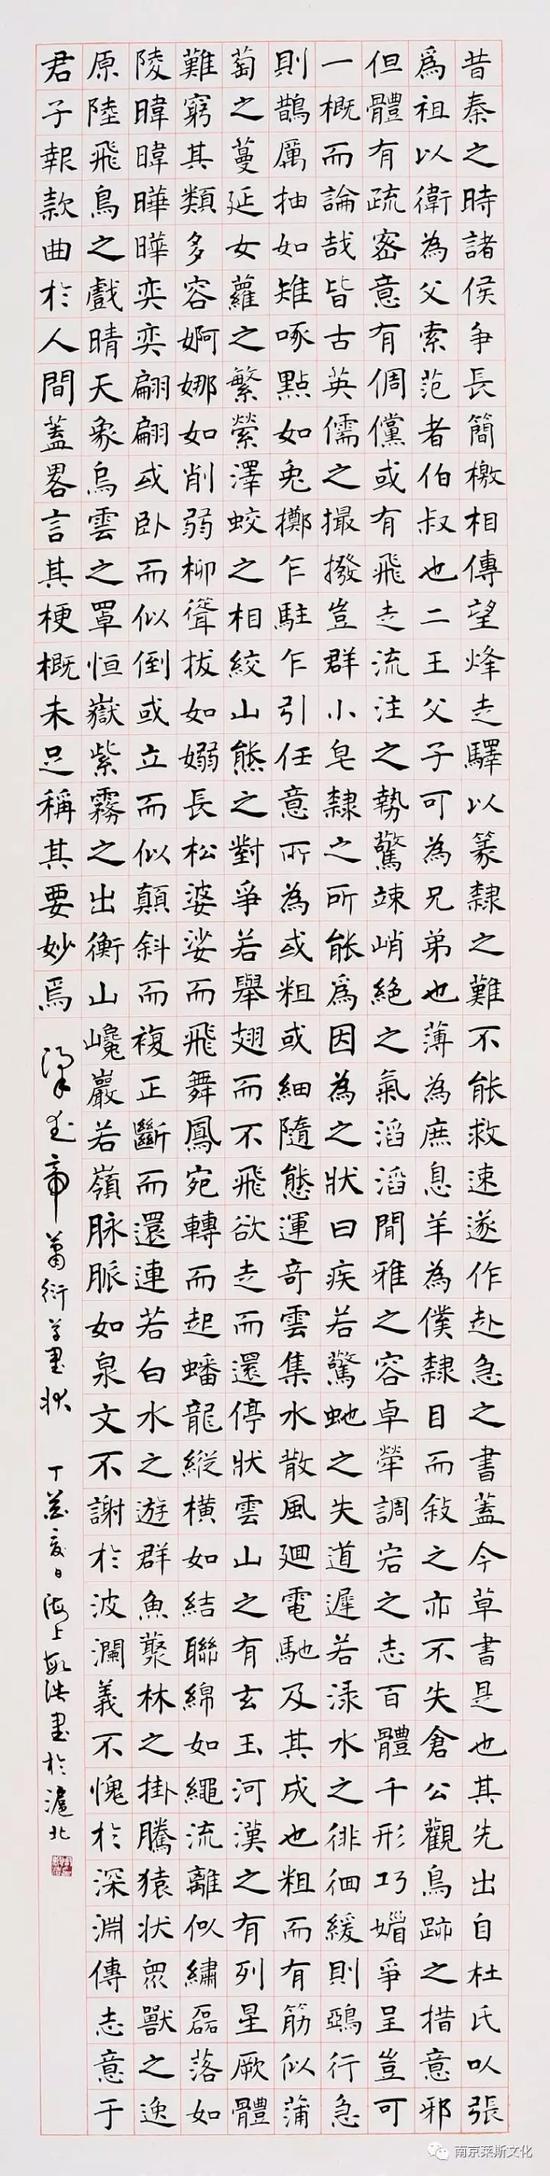 昔秦之時諸侯爭長簡檄相傳望烽走驛以篆隸之難不能救速遂作赴急之書蓋今草書是也其先出自杜氏以張
爲祖以衛為父索范者伯叔也二王父子可為兄弟也薄為庶息羊為僕隸目而敍之亦不失倉公觀鳥跡之措意邪
但體有疏密意有倜儻或有飛走流注之勢驚竦峭絕之氣滔滔閒雅之容卓犖調宕之志百體千形巧媚爭呈豈可
一概而論哉皆古英儒之撮撥豈群小皂隸之所能爲因為之狀曰疾若驚虵之失道遲若淥水之徘徊緩則鵶行急
則鵲厲抽如雉啄點如兎擲乍駐乍引任意所為或粗或細隨態運奇雲集水散風廻電馳及其成也粗而有筋似蒲
萄之蔓延女蘿之繁縈澤蛟之相絞山熊之對爭若舉翅而不飛欲走而還停狀雲山之有玄玉河漢之有列星厥體
難窮其類多容婀娜如削弱柳聳拔如嫋長松婆娑而飛舞鳳宛轉而起蟠龍縱橫如結聯綿如繩流離似繡磊落如
陵暐暐曄曄弈弈翩翩或卧而似倒或立而似顛斜而複正斷而還連若白水之遊群魚藂林之掛騰猿狀衆獸之逸
原陸飛鳥之戲晴天象烏雲之罩恒嶽紫霧之出衡山巉巖若嶺脉脈如泉文不謝於波瀾義不愧於深淵傳志意于
君子報款曲於人間蓋畧言其梗概未足稱其要妙焉
梁武帝蕭衍草書狀 丁 夏日海上 洪書於滬北
南京莱斯文化